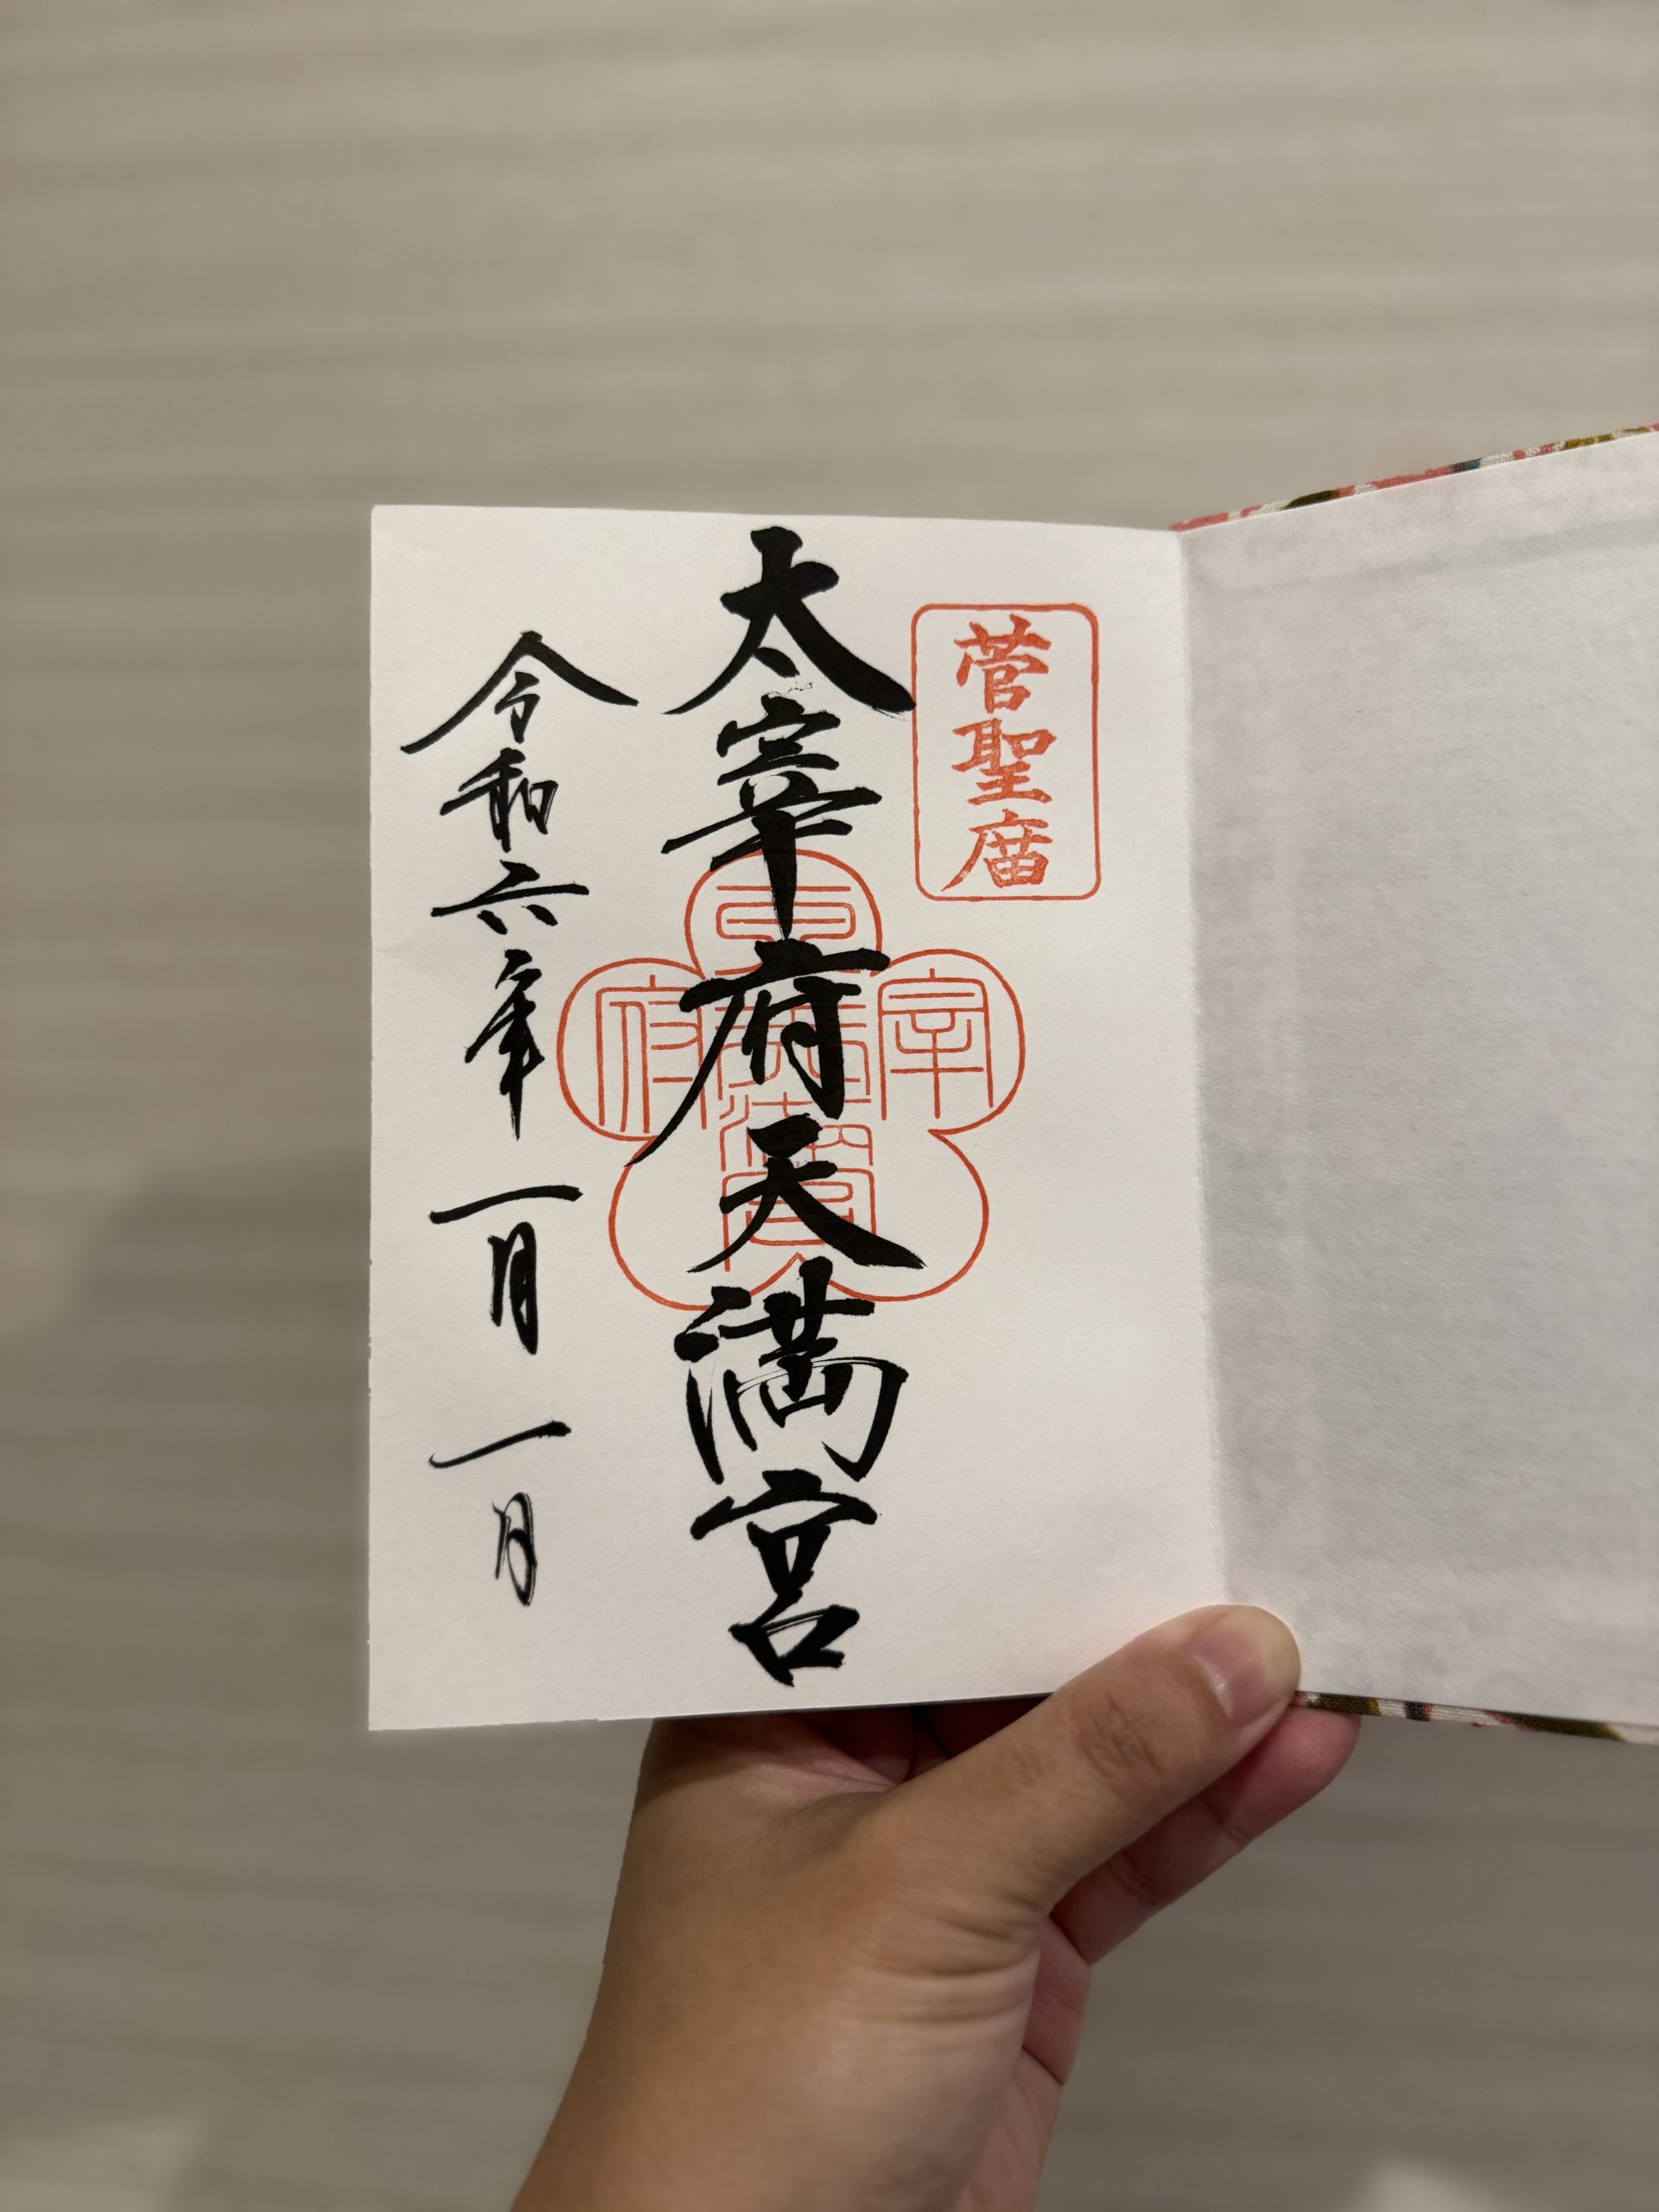 菅聖庿
太宰府天満宮
宰
府
令和六年一月一日